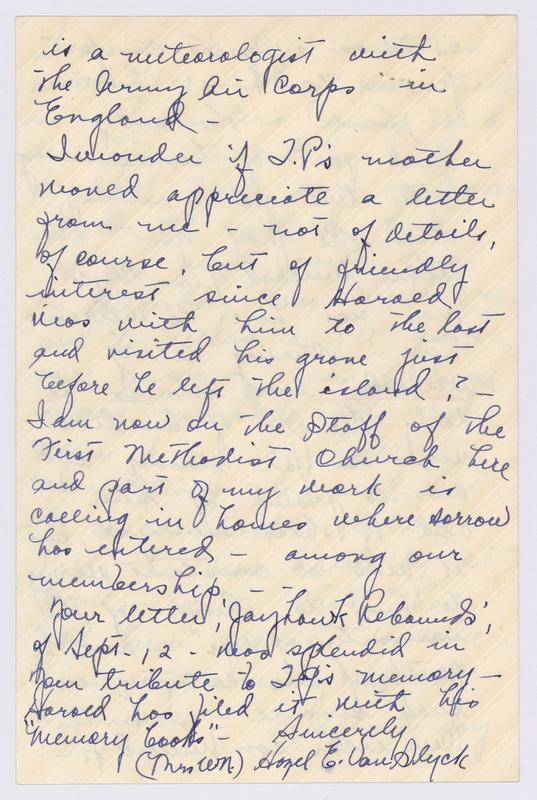 is a meteorologist with
the Army Air Corps in
England -
I wonder if T.P.'s mother
would appreciate a letter
from me - not of details,
of course, but of friendly
interest since Harold
was with him to the last
and visited his grave just
before he left the island? -
I am now on the Staff of the
First Methodist Church here
and part of my work is
calling in homes where sorrow
has entered - among our
membership - -
Your letter, 'Jayhawk Rebounds',
of Sept. 12 - was splendid in
your tribute to T.P.'s memory -
Harold has filed it with his
"memory books" - Sincerely
(Mrs W.R.) Hazel E. Van Slyck